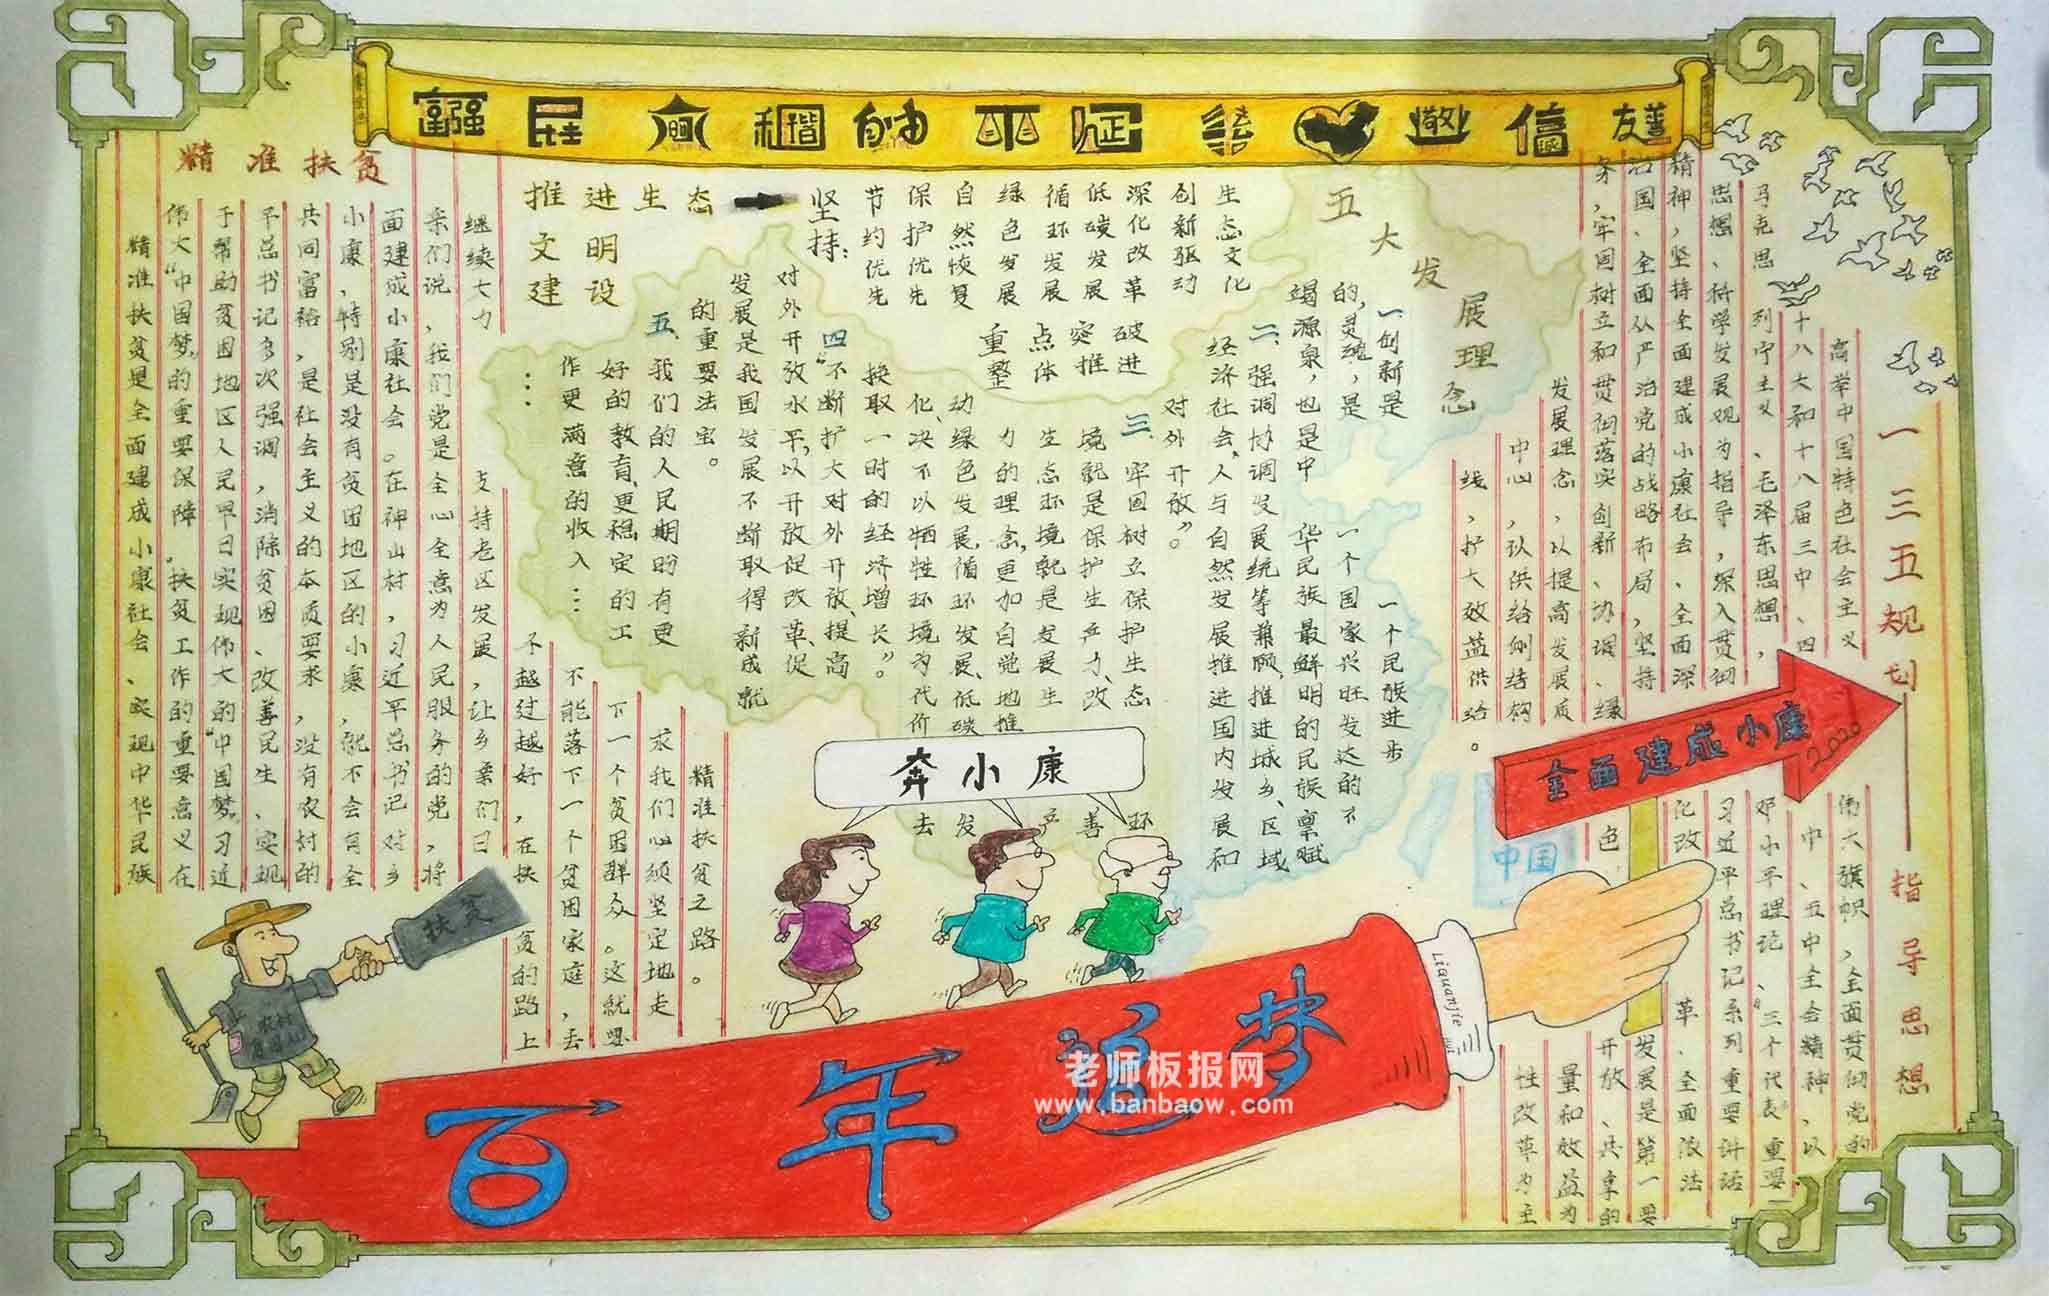 富强 民主 文明 和谐 自由 平等 公正 法治 爱国 敬业 诚信 友善
一三五规划
指导思想
高举中国特色社会主义
伟大旗帜，全面贯彻党的
十八大和十八届三中、四
中、五中全会精神，以
马克思列宁主义、毛泽东思想，
邓小平理论、“三个代表”重要
思想、科学发展观为指导，深入贯彻
习近平总书记系列重要讲话
精神，坚持全面建成小康社会、全面深
化改革、全面依法
治国、全面从严治党的战略布局，坚持
发展是第一要
务，牢固树立和贯彻落实创新、协调、绿
色、开放、共享的
发展理念，以提高发展质
量和效益为
中心，以供给侧结构
性改革为主
线，扩大效益供给。
全面建成小康
2020
中国
五大发展理念
一创新是
一个民族进步
的灵魂，是
一个国家兴旺发达的不
竭源泉，也是中
华民族最鲜明的民族禀赋
二、强调协调发展统筹兼顾，推进城乡、区域
经济社会、人与自然发展推进国内发展和
对外开放”。
三、牢固树立保护生态
环
境就是保护生产力、改
善
生态环境就是发展生
产
力的理念，更加自觉地推
动绿色发展、循环发展、低碳
发
化、决不以牺牲环境为代价
去
换取一时的经济增长”。
四“不断扩大对外开放、提高
对外开放水平，以开放促改革、促
发展是我国发展不断取得新成就
的重要法宝。
五、我们的人民期盼有更
好的教育、更稳定的工
作更满意的收入……
……
推进生态
文明
建设
坚持：
节约优先
保护优先
自然恢复
绿色发展
循环发展
低碳发展
深化改革
创新驱动
生态文化
重点突破
整体推进
精准扶贫
精准扶贫是全面建成小康社会、实现中华民族
伟大“中国梦”的重要保障。扶贫工作的重要意义在
于帮助贫困地区人民早日实现伟大的“中国梦”。习近
平总书记多次强调，消除贫困、改善民生、实现
共同富裕，是社会主义的本质要求，没有农村的
小康，特别是没有贫困地区的小康，就不会有全
面建成小康社会。在神山村，习近平总书记对乡
亲们说，我们党是全心全意为人民服务的党，将
继续大力
支持老区发展，让乡亲们日
不越过越好，在扶
贫的路上
不能落下一个贫困家庭，去
下一个贫困群众。这就要
求我们必须坚定地走
精准扶贫之路。
奔小康
扶贫
农村
百年追梦
Liquanjie
老师板报网
www.banbaow.com